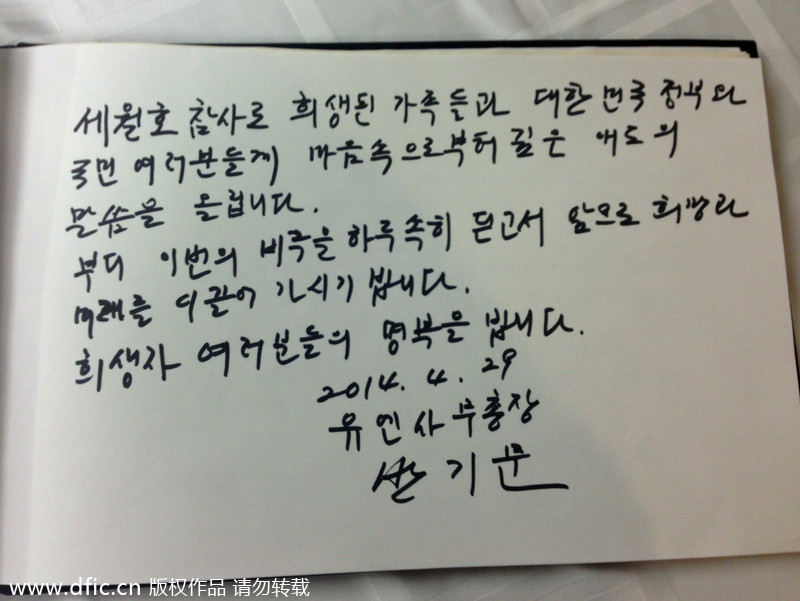 세월호 참사로 희생된 가족들과 대한민국 정부와
국민 여러분들께 마음속으로부터 깊은 애도의
말씀을 올립니다.
부디 이번의 비극을 하루속히 딛고서 앞으로 희망과
미래를 이끌어 가시기 빕니다.
희생자 여러분들의 명복을 빕니다.
2014. 4. 29
유엔사무총장
반기문
www.dfic.cn 版权作品 请勿转载